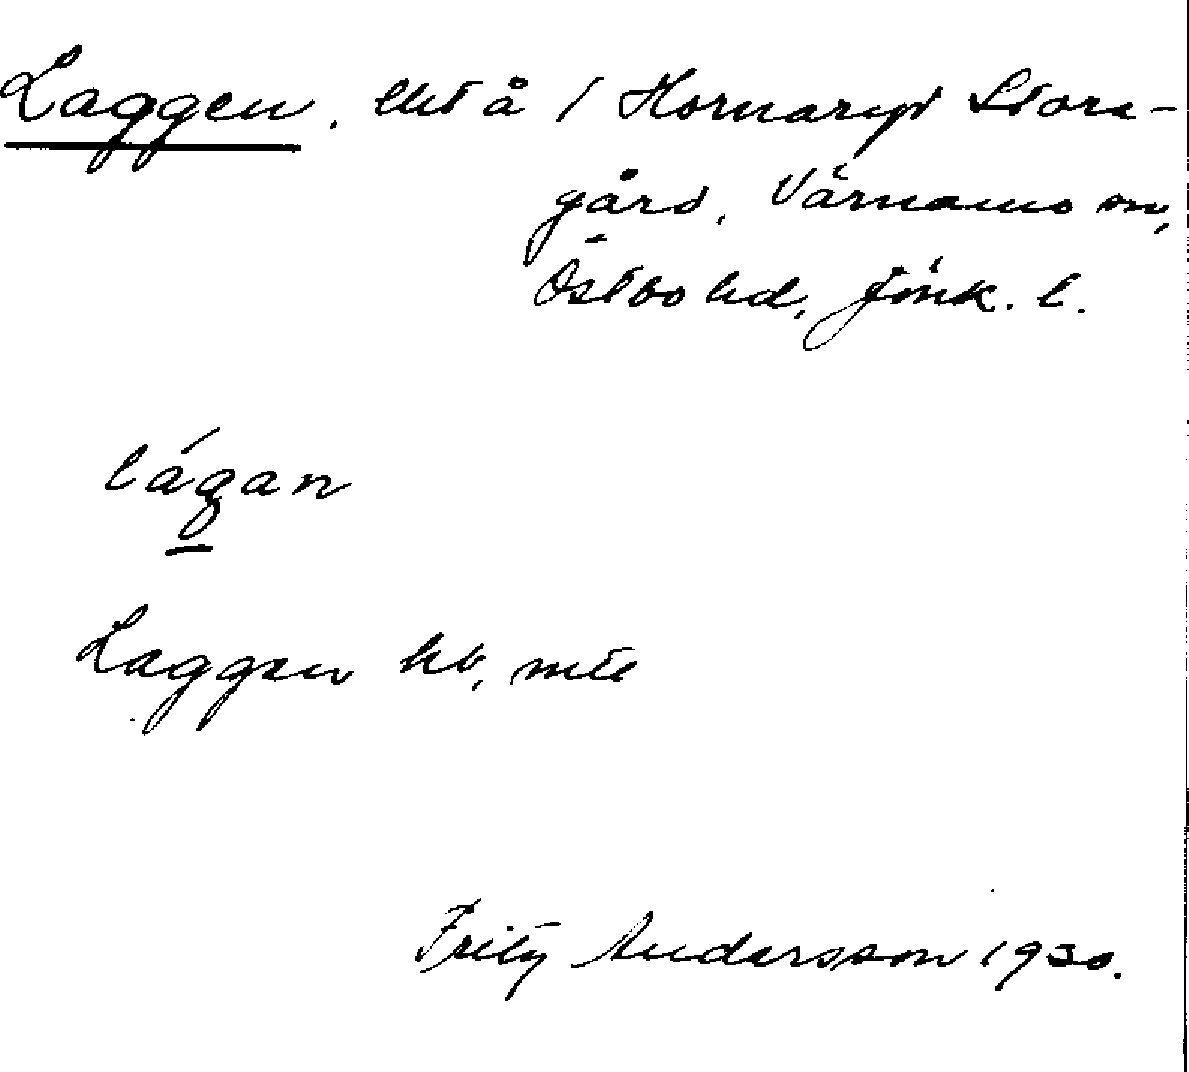 Laggen, the å / Hornaryd Stora-
gård, Värnamo sn,
Östbo hd, Jönk. l.
lágan
Laggen hb,
Fritz Andersson 1930.